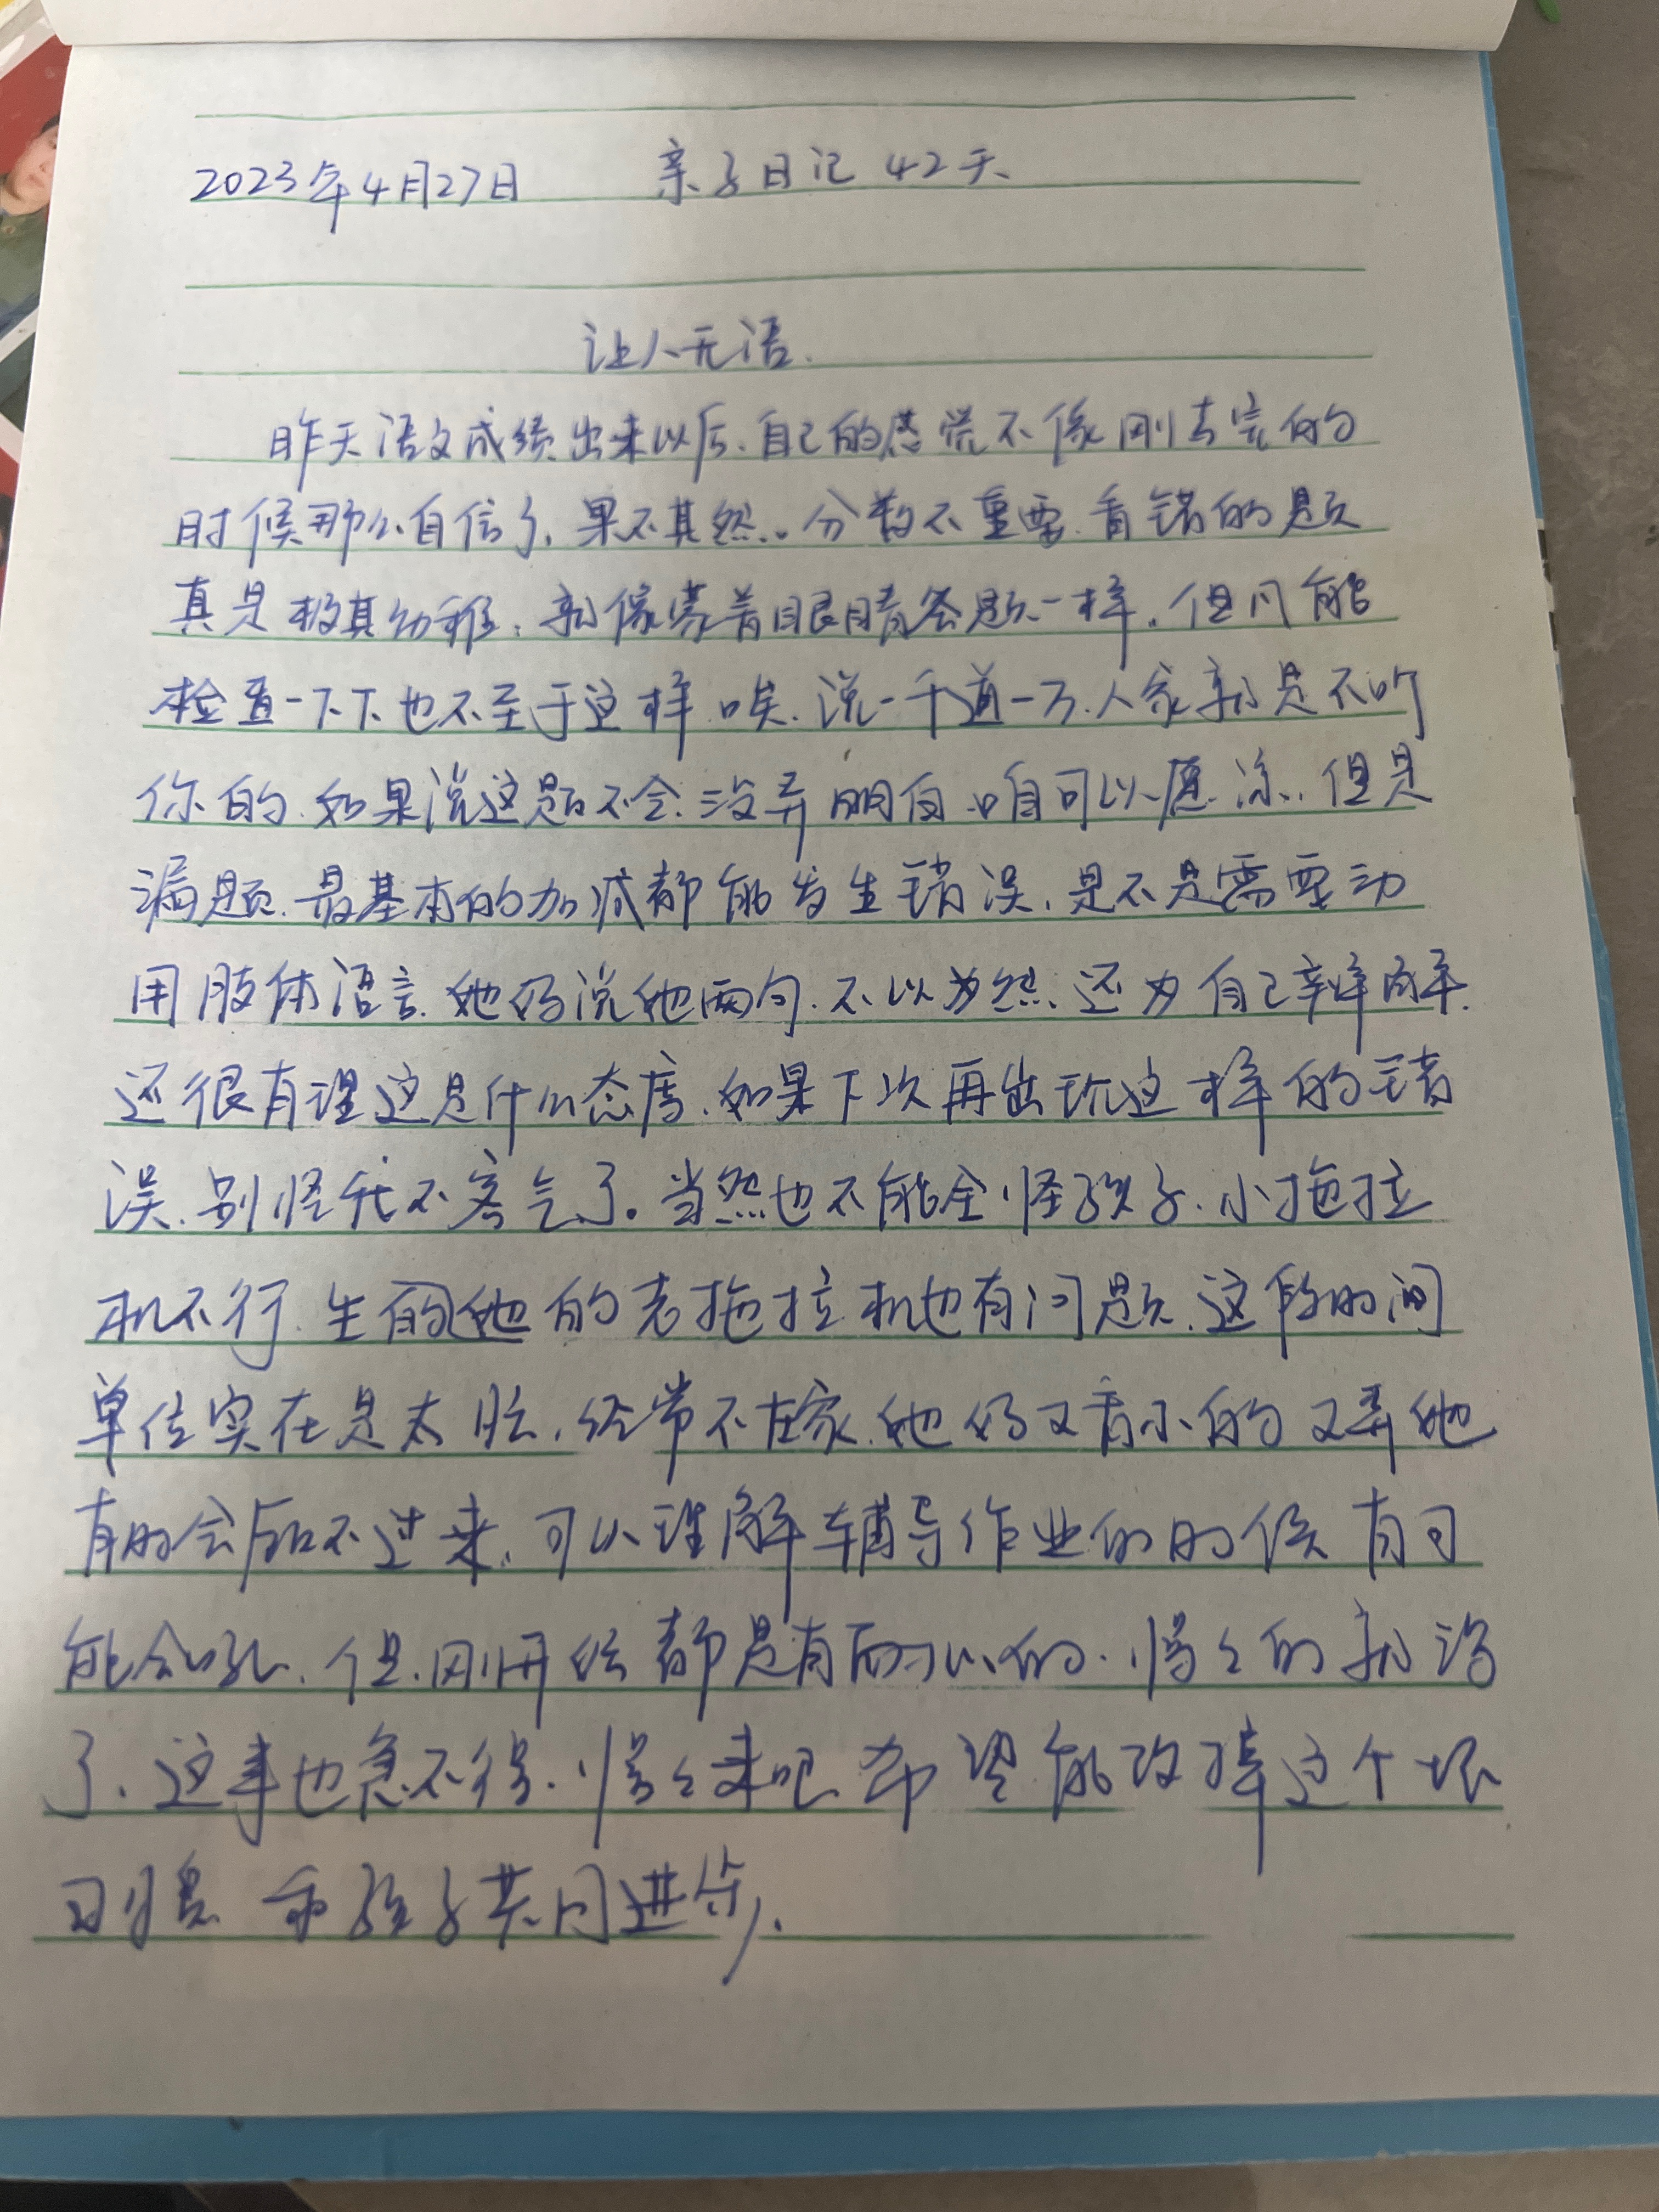 2023年4月27日 亲子日记 42天
让人无语.
昨天语文成绩出来以后.自己的感觉不像刚考完的
时候那么自信了,果不其然..分数不重要.看错的题
真是极其幼稚.就像蒙着眼睛答题一样.但凡能
检查一下下也不至于这样.唉.说一千道一万.人家就是不听
你的.如果说这题不会.没弄明白.咱可以原谅.但是
漏题.最基本的加减都能发生错误.是不是需要动
用肢体语言.她妈说她两句.不以为然.还为自己辩解.
还很有理这是什么态度.如果下次再出现这样的错
误.别怪我不客气了。当然也不能全怪孩子.小拖拉
机不行.生的她的老拖拉机也有问题.这段时间
单位实在是太忙.经常不在家.她妈又看小的又弄她
有时会顾不过来.可以理解辅导作业的时候有可
能会吼.但.刚开始都是有耐心的.慢慢的就没
了.这事也急不得.慢慢来吧.希望能改掉这个坏
习惯 和孩子共同进步.